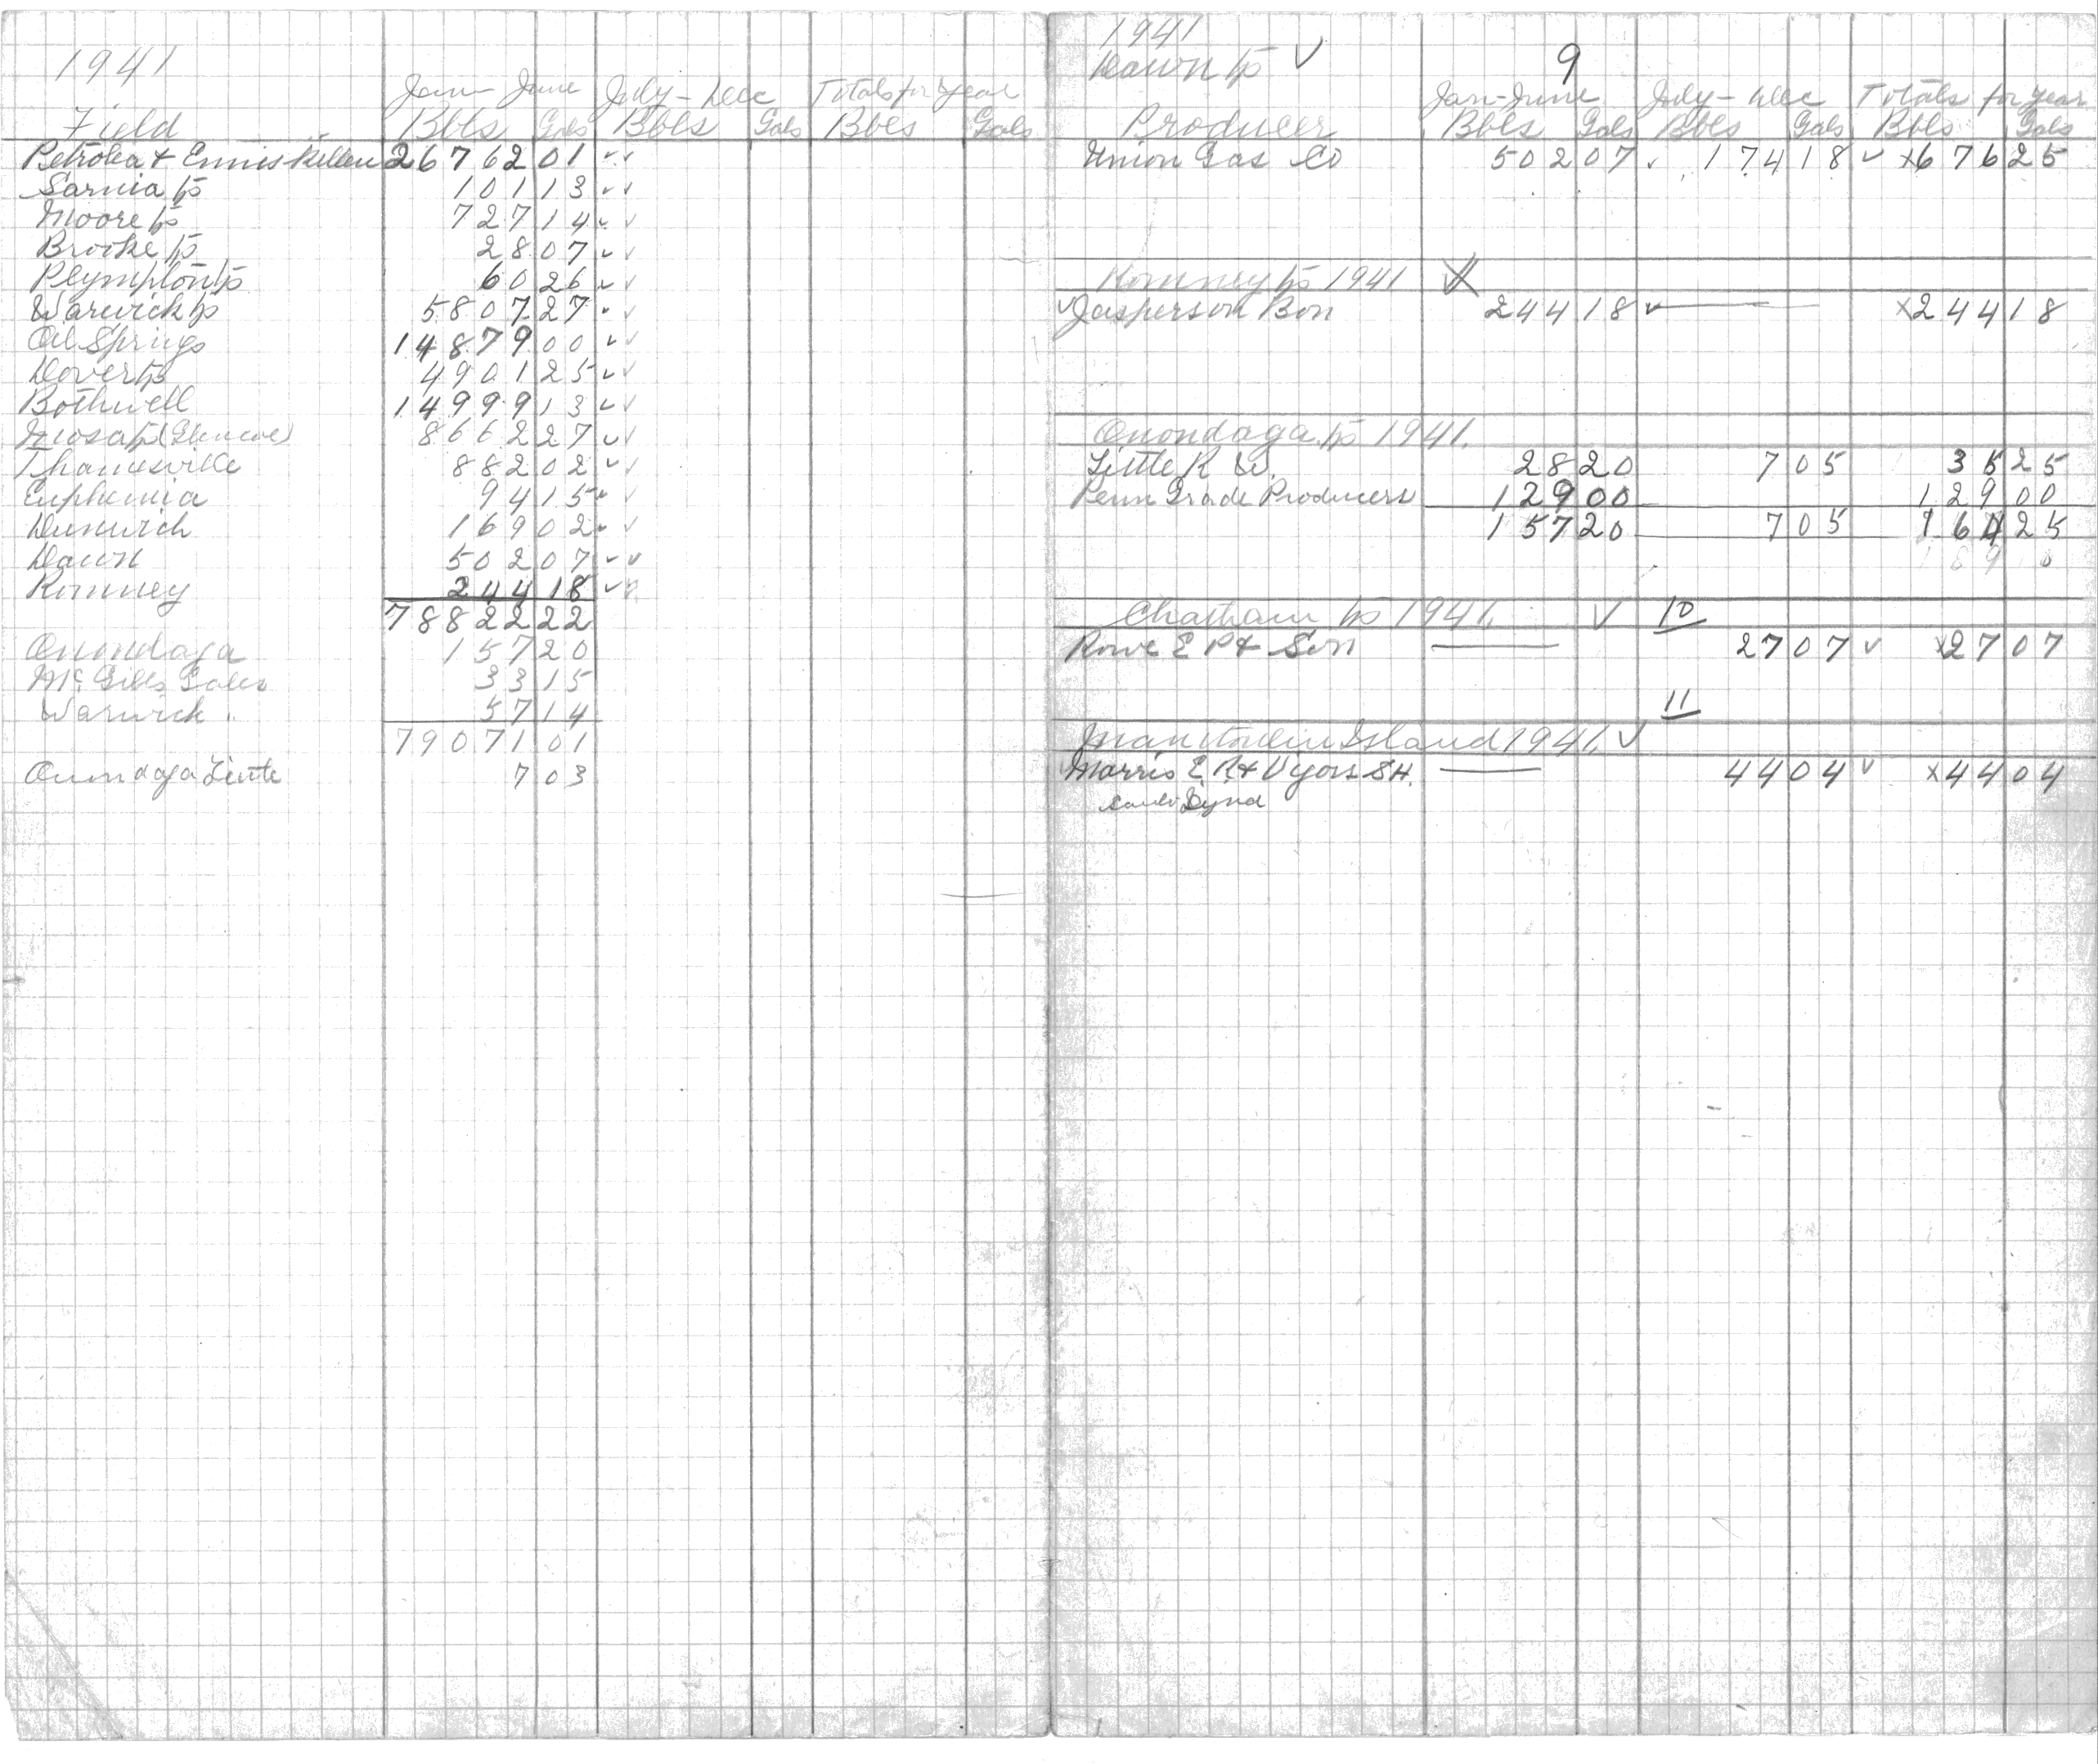 1941
Jan - June July - Dec Totals for Year
Field Bbls Gals Bbls Gals Bbls Gals
Petrolea & Enniskillen 26762 01 ✓✓
Sarnia tp 101 13 ✓✓
Moore tp 727 14 ✓✓
Brooke tp 28 07 ✓✓
Plympton tp 60 26 ✓✓
Warwick tp 5807 27 ✓✓
Oil Springs 14879 00 ✓✓
Dover tp 4901 25 ✓✓
Bothwell 14999 13 ✓✓
Mosa tp (Glencoe) 8662 27 ✓✓
Thamesville 882 02 ✓✓
Euphemia 94 15 ✓
Dunwich 169 02 ✓✓
Dawn 502 07 ✓✓
Romney 244 18 ✓
78822 22
Onondaga 157 20
Mc Gills Sales 33 15
Warwick 57 14
79071 01
Onondaga Little 7 03
1941
Dawn tp ✓ 9
Jan-June July - Dec Totals for year
Producer Bbls Gals Bbls Gals Bbls Gals
Union Gas Co 502 07 ✓ 174 18 ✓ x676 25
Romney tp 1941
✓Jasperson Bon 244 18 ✓ — x244 18
Onondaga tp 1941.
Little R W. 28 20 7 05 35 25
Penn Grade Producers 129 00 129 00
157 20 7 05 164 25
Chatham tp 1941. ✓ 10
Rowe E P & Son — 27 07 ✓ x27 07
11
Manitoulin Island 1941. ✓
Morris E. R & Vyors S H. — 44 04 ✓ x44 04